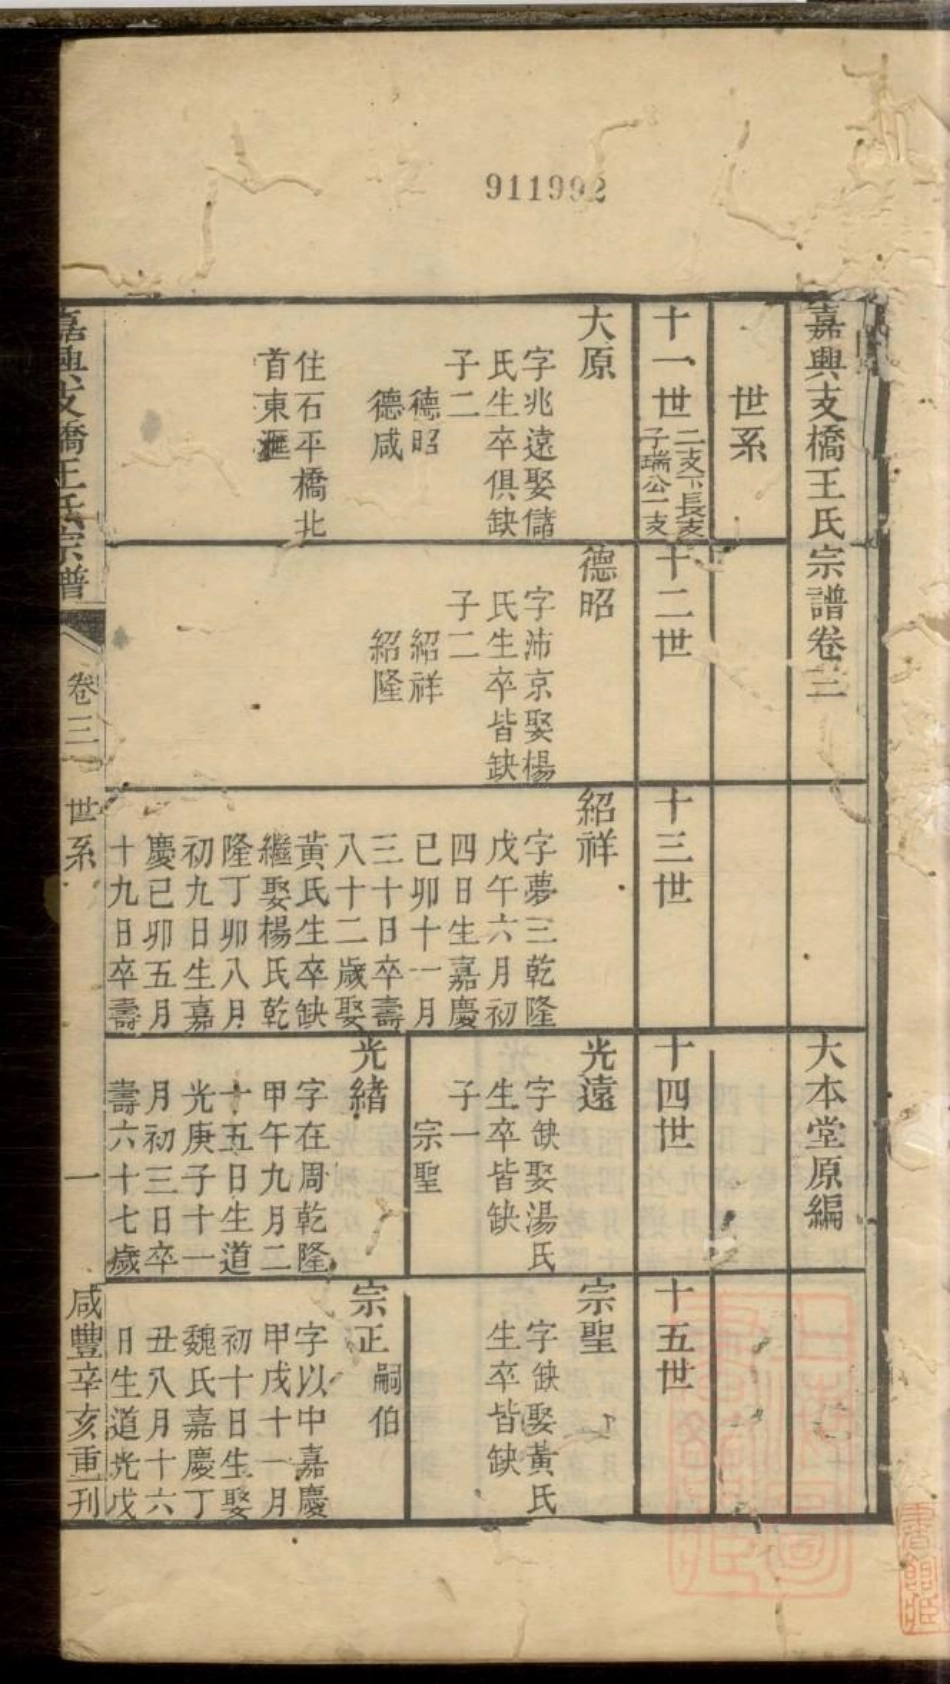 911992
嘉興支橋王氏宗譜卷三
大本堂原編
世系
十一世
二支下長支
子瑞公一支
大原
字兆遠娶儲
氏生卒俱缺
子二
德昭
德咸
住石平橋北
首東滙
十二世
德昭
字沛京娶楊
氏生卒皆缺
子二
紹祥
紹隆
十三世
紹祥
字夢三乾隆
戊午六月初
四日生嘉慶
已卯十一月
三十日卒壽
八十二歲娶
黃氏生卒缺
繼娶楊氏乾
隆丁卯八月
初九日生嘉
慶已卯五月
十九日卒壽
十四世
光遠
字缺娶湯氏
生卒皆缺
子一
宗聖
光緒
字在周乾隆
甲午九月二
十五日生道
光庚子十一
月初三日卒
壽六十七歲
十五世
宗聖
字缺娶黃氏
生卒皆缺
宗正嗣伯
字以中嘉慶
甲戌十一月
初十日生娶
魏氏嘉慶丁
丑八月十六
日生道光戊
嘉興支橋王氏宗譜
卷三
世系
一
咸豐辛亥重刊